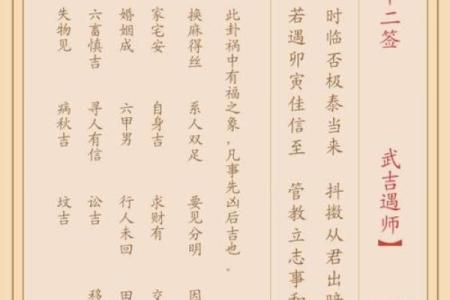 二签 武吉遇师】
时临否极泰当来 抖掇从君出暗
若遇卯寅佳信至 管教立志事和
此卦祸中有福之象，凡事先凶后吉也。
换麻得丝 系人双足 要见分明 因
家宅安 自身吉 求财有 交
婚姻成 六甲男 行人未回 田
六畜慎吉 寻人有信 讼吉 移
失物见 病秋吉 坟吉